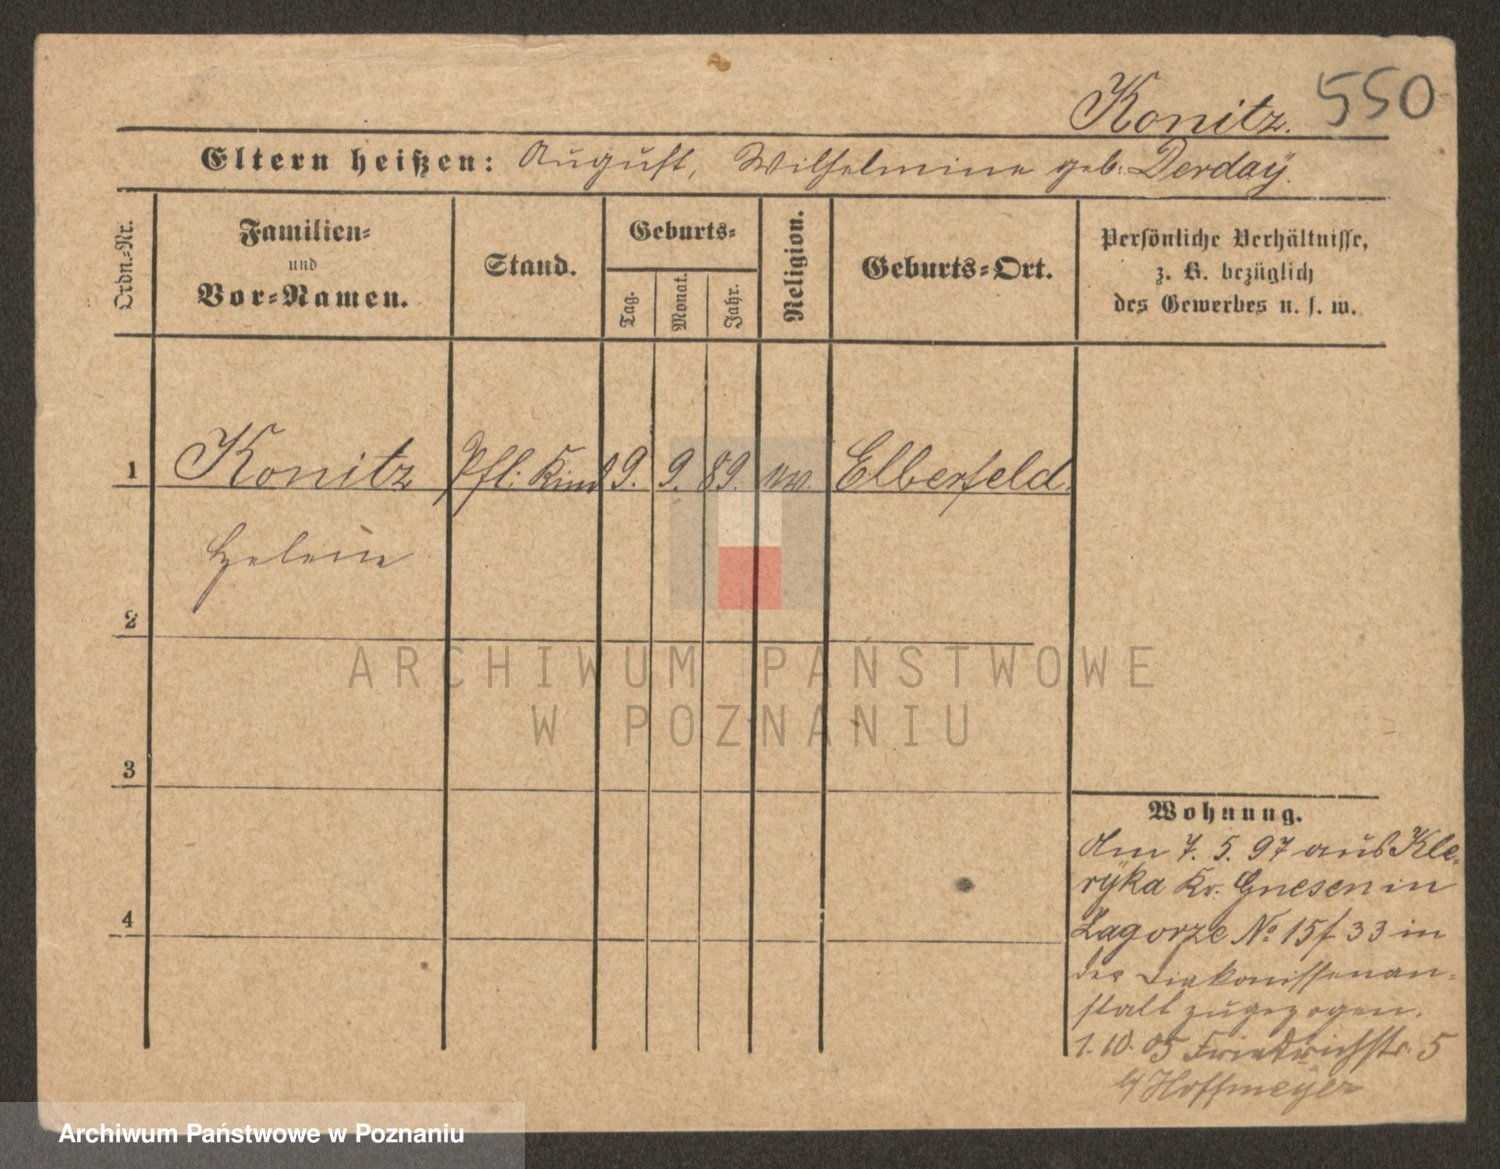 Konitz. 550
Eltern heißen: August, Wilhelmine geb. Derday.
Ordn.-Nr.
Familien-
und
Vor-Namen.
Stand.
Geburts-
Tag.
Monat.
Jahr.
Religion.
Geburts-Ort.
Persönliche Verhältnisse,
z. B. bezüglich
des Gewerbes u. s. w.
1 Konitz Pfl. Kind 9. 9. 89. Elberfeld.
Helene
2
ARCHIWUM PAŃSTWOWE
W POZNANIU
3
Wohnung.
Am 7. 5. 97 aus Kle-
ryka Kr. Gnesen in
Zagorze No 15/ 33 in
der Diakonissenan-
stalt zugezogen.
1. 10. 05 Friedrichstr. 5
b/ Hoffmeyer
4
Archiwum Państwowe w Poznaniu